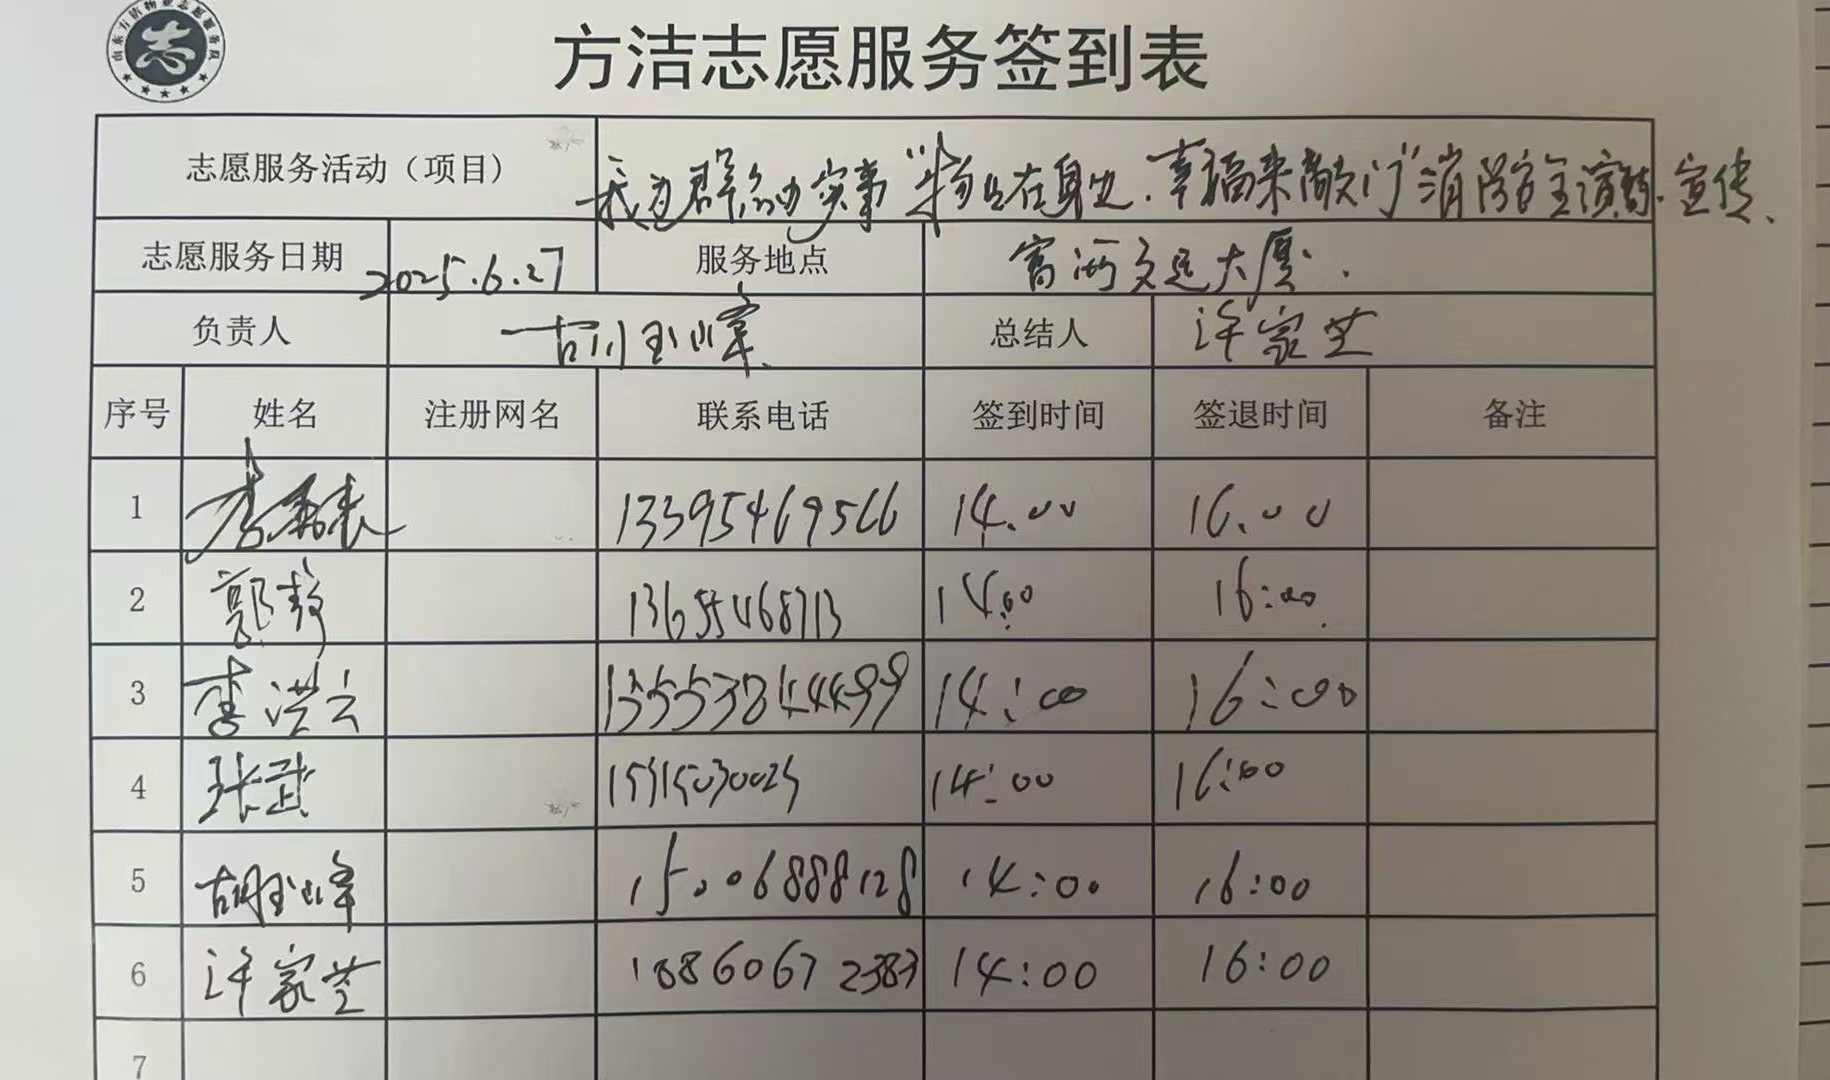 山东方洁物业志愿服务队
志
方洁志愿服务签到表
志愿服务活动（项目） 我为群众办实事“物业在身边，幸福来敲门”消防安全演练、宣传、
志愿服务日期 2025.6.27 服务地点 富海交运大厦.
负责人 胡玉峰 总结人 许家芝
序号 姓名 注册网名 联系电话 签到时间 签退时间 备注
1 13395469566 14.00 16.00
2 郭静 13655468713 14:00 16:00
3 李洪云 14:00 16:00
4 张武 14:00 16:00
5 胡玉峰 15006888128 14:00 16:00
6 许家芝 18860672383 14:00 16:00
7